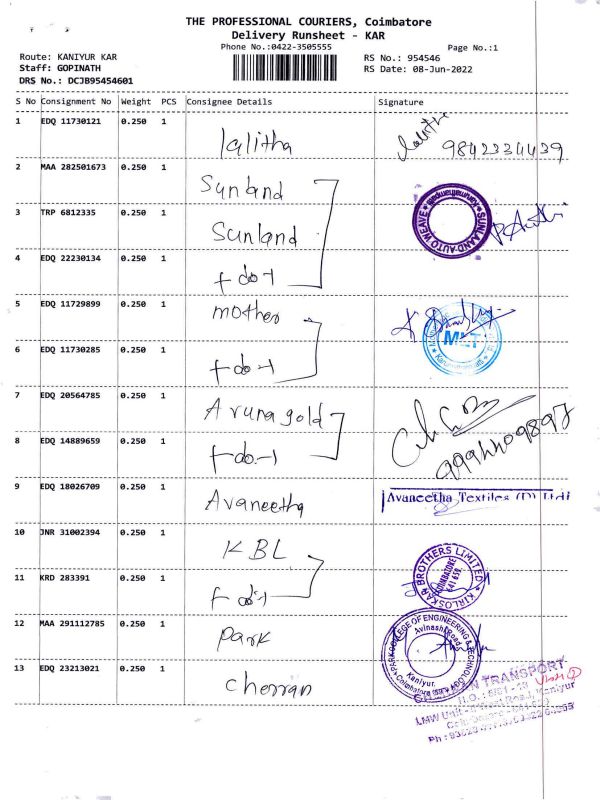 THE PROFESSIONAL COURIERS, Coimbatore
Delivery Runsheet - KAR
Phone No.:0422-3505555
Page No.:1
Route: KANIYUR KAR
RS No.: 954546
Staff: GOPINATH
RS Date: 08-Jun-2022
DRS No.: DCJB95454601
S No Consignment No Weight PCS Consignee Details Signature
1 EDQ 11730121 0.250 1 lalitha lalitha 9842334439
2 MAA 282501673 0.250 1 Sunland
SUNLAAND AUTO WEAVE
3 TRP 6812335 0.250 1 Sunland
4 EDQ 22230134 0.250 1 +do-1
5 EDQ 11729899 0.250 1 mother
MET
6 EDQ 11730285 0.250 1 +do-1
7 EDQ 20564785 0.250 1 Aruna gold
8 EDQ 14889659 0.250 1 +do-1
9 EDQ 18026709 0.250 1 Avaneetha Avaneetha Textiles (P) Ltd
10 JNR 31002394 0.250 1 KBL
KIRLOSKAR BROTHERS LIMITED
COIMBATORE
641 659
11 KRD 283391 0.250 1 +do-1
12 MAA 291112785 0.250 1 park
PARK COLLEGE OF ENGINEERING & TECHNOLOGY
Avinashi Road,
Kaniyur,
13 EDQ 23213021 0.250 1 cherran
TRANSPORT
LMW Unit
Kaniyur